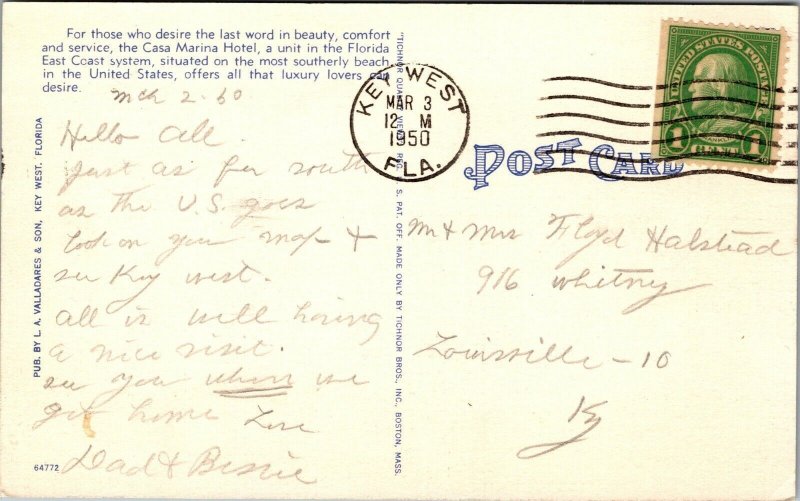 For those who desire the last word in beauty, comfort
and service, the Casa Marina Hotel, a unit in the Florida
East Coast system, situated on the most southerly beach
in the United States, offers all that luxury lovers can
desire.
Mch 2-50
Hello all.
Just as far south
as the U.S. goes
look on you map &
see Key west.
all is well having
a nice visit.
see you when we
get home Love
Dad & Bessie
64772
PUB. BY L. A. VALLADARES & SON, KEY WEST, FLORIDA
"TICHNOR QUALITY VIEWS," REG. U. S. PAT. OFF. MADE ONLY BY TICHNOR BROS., INC., BOSTON, MASS.
KEY WEST
MAR 3
12 M
1950
FLA.
UNITED STATES POSTAGE
1 CENT 1
POST CARD
Mr & Mrs Floyd Halstead
916 Whitney
Louisville - 10
Ky